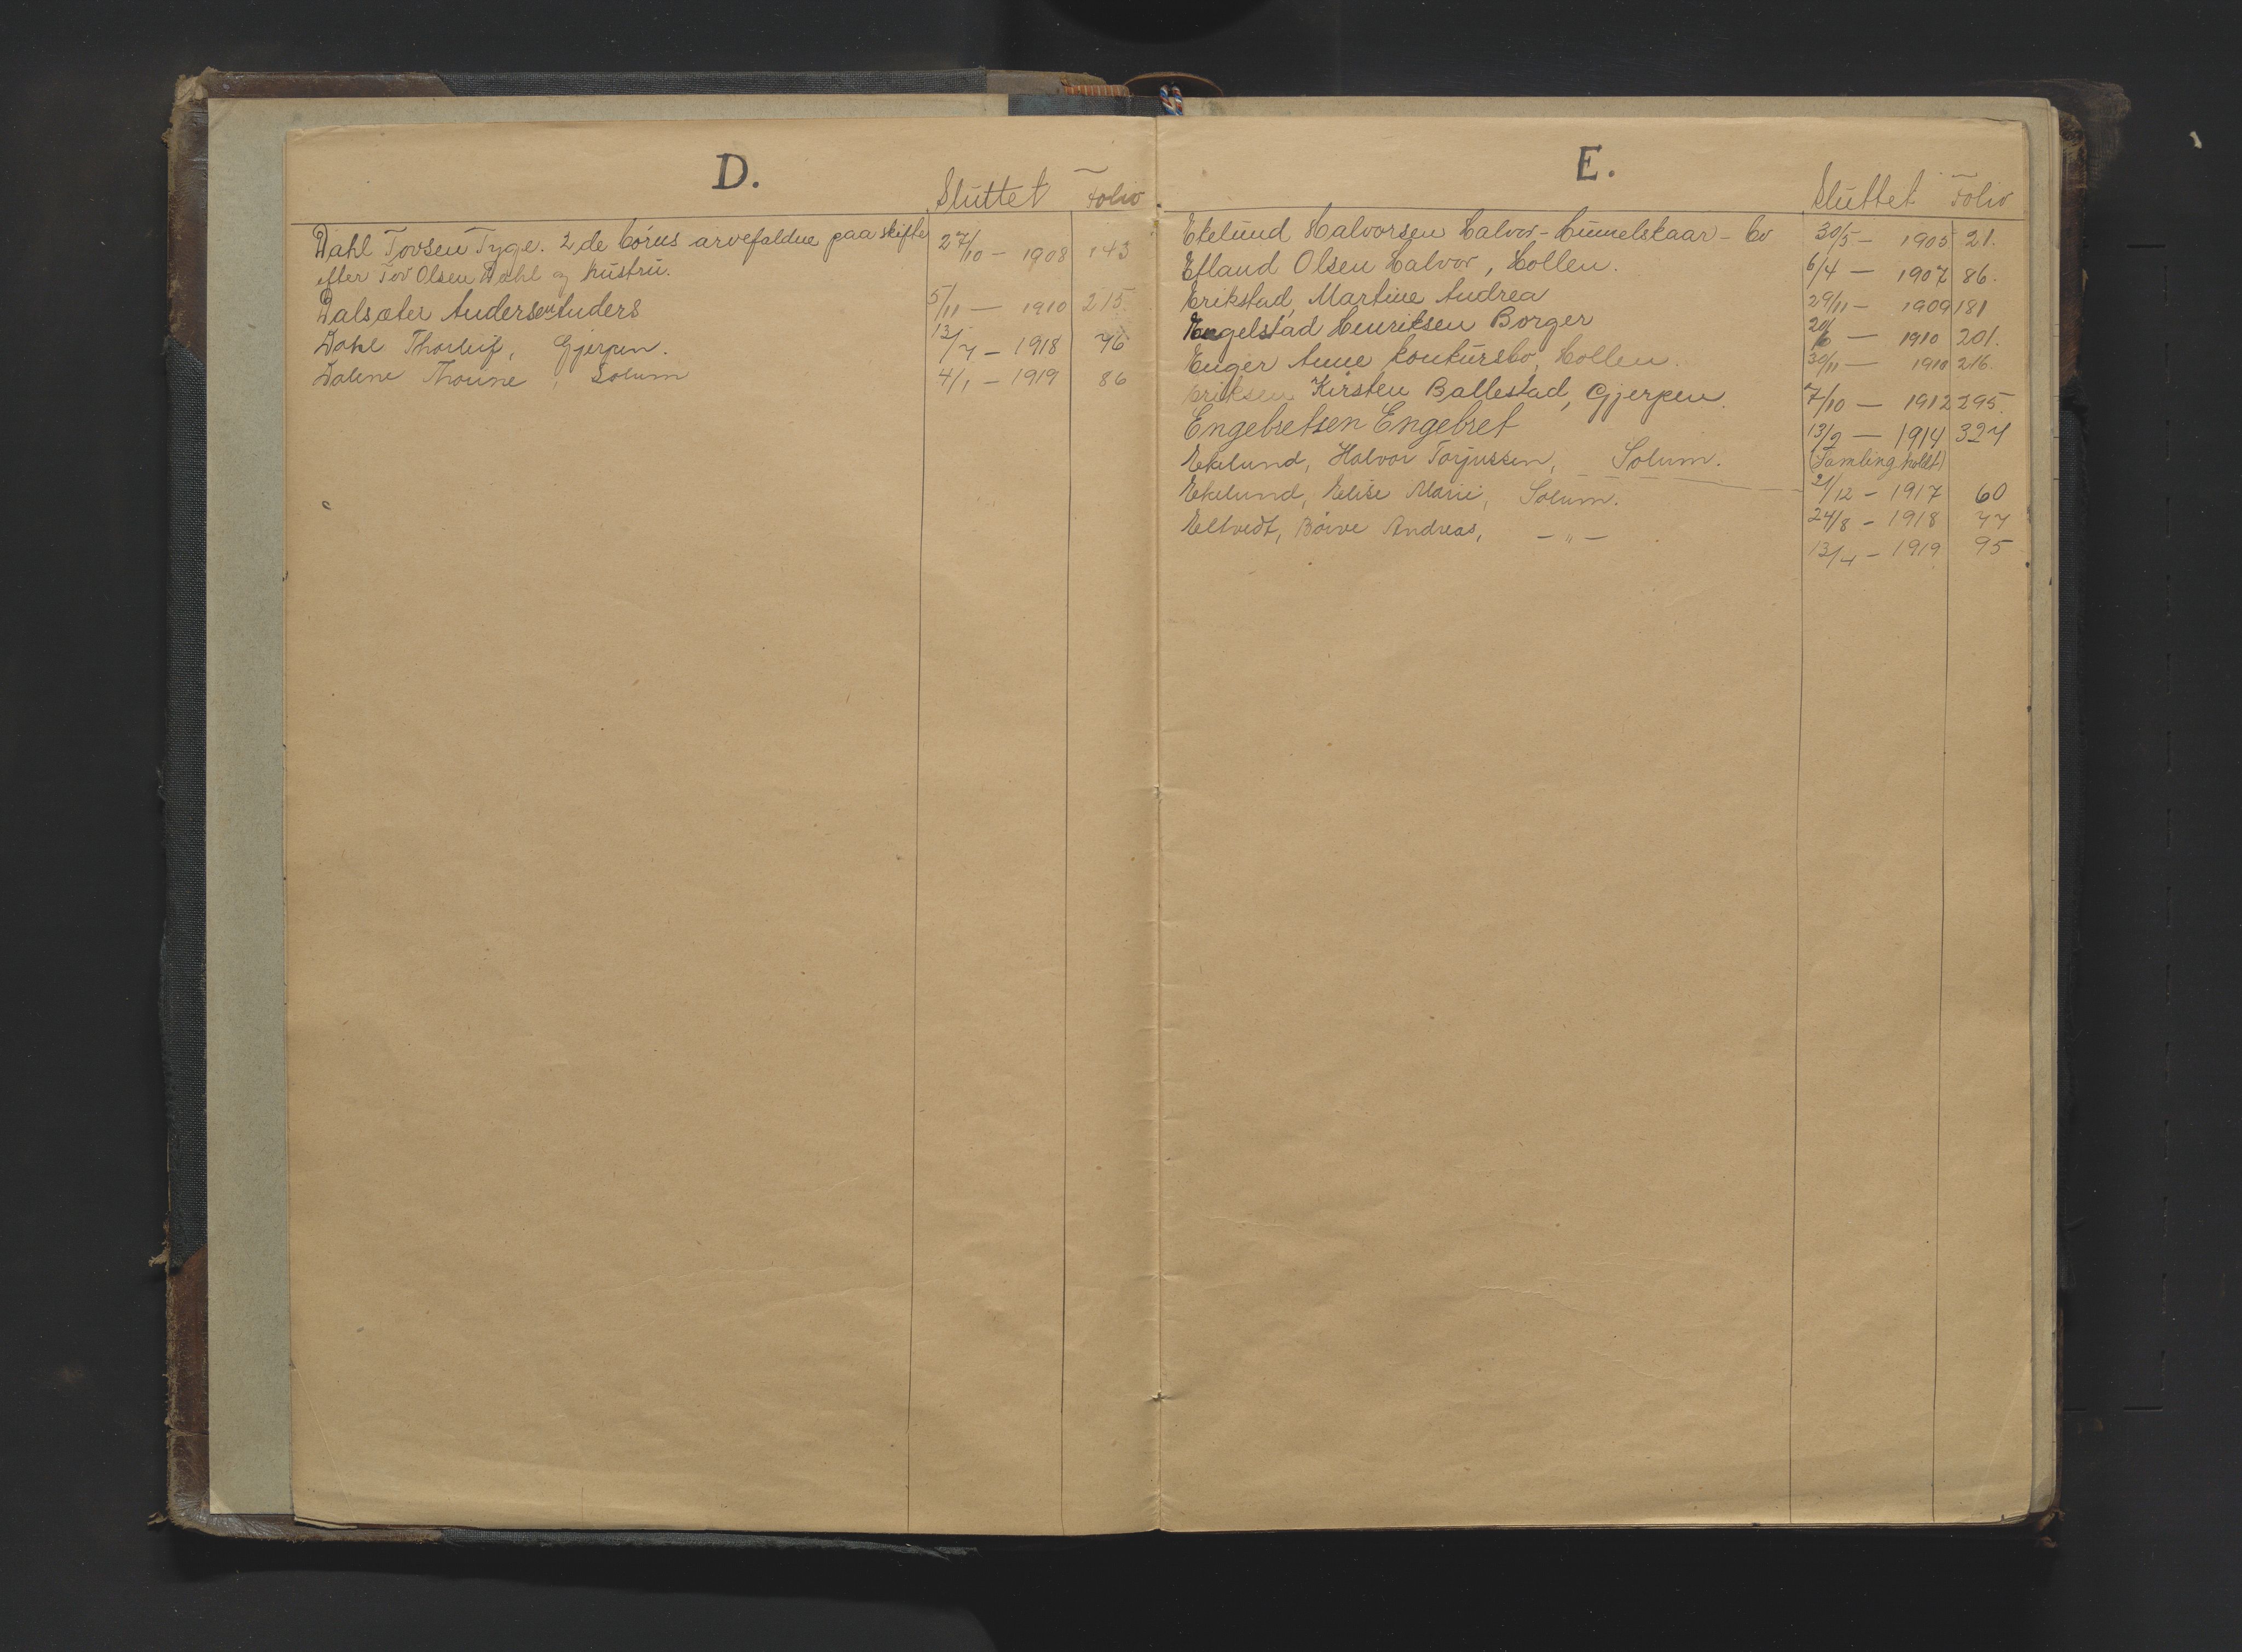 D.
Sluttet Folio
Dahl Tovsen Tyge. 2 de børns arvefaldne paa skifte 27/10 - 1908 143
efter Tov Olsen Dahl og hustru.
Dalsæter Andersen Anders 5/11 - 1910 215.
Dahl Thorleif, Gjerpen. 13/7 - 1918 76
Dalene Thorine, Solum 4/1 - 1919 86
E.
Sluttet Folio
Ekelund Halvorsen Halvor - Hummelskaar - bo 30/5 - 1905 21.
Efland Olsen Halvor, Hollen. 6/4 - 1907 86.
Erikstad, Martine Andrea 29/11 - 1909 181
Engelstad Henriksen Borger 20/6 - 1910 201.
Enger Anne konkursbo, Hollen. 30/11 - 1910 216.
Eriksen Kirsten Ballestad, Gjerpen. 7/10 - 1912 295.
Engebretsen Engebret 13/2 - 1914 327
Ekelund, Halvor Torjussen, Solum. (Samling holdt)
21/12 - 1917 60
Ekelund, Elise Marie, Solum. 24/8 - 1918 77
Eltvedt, Børve Andreas, - " - 13/4 - 1919 95